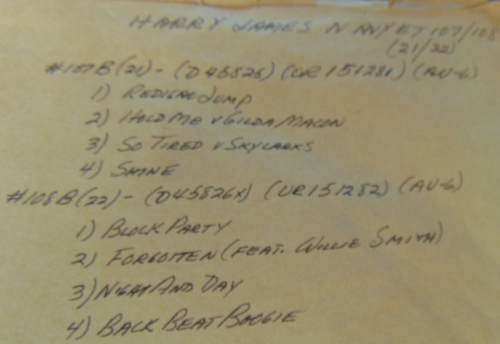 HARRY JAMES N ANY ET 107/108
(21/22)
#107B (21) - (D45825) (UR151281) (AU-6)
1) REDIGAL JUMP
2) HOLD ME V GILDA MACON
3) SO TIRED V SKYLARKS
4) SHINE
#108B (22) - (D45826X) (UR151282) (AU-6)
1) BLOCK PARTY
2) FORGOTTEN (FEAT. WILLIE SMITH)
3) NIGHT AND DAY
4) BACK BEAT BOOGIE